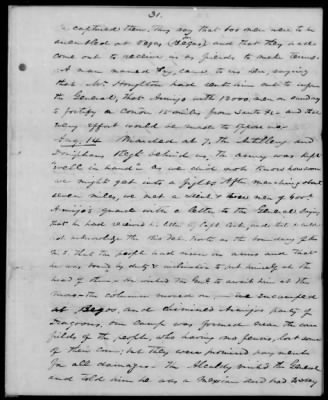 31.
captured them, they say that 600 men were to be
assembled at Vegas (Begas) and that they had
come out to receive us as friends to make terms.
A man named Spry, came to us, saying
that Mr. Houghton had sent him out to inform
the General, that Armijo with 12000 men on sunday
to fortify a Cañon 15 miles from Santa Fe and that
every effort would be made to
Aug. 14 Marched at 7, the Artillery and
Doniphans Regt behind us, the army was kept
"well in hand" as we did not know how soon
we might get into a fight. After marching about
seven miles, we met a Lieut & three men of Gov.
Armijo's guard with a letter to the General saying
that he had received his letter by Capt. Cook, and that he could
not acknowledge the Rio Del Norte as the boundary of
the U.S. that the people had risen en arms and that
he was bound by duty & inclination to put himself at the
head of them, he wished the Genl to await him at the
the column moved on, we encamped
at Begas, and dismissed Armijo's party of
Dragoons, our Camp was formed near the corn
fields of the people, who having no fences, lost some
of their Corn; but they were promised payments
for all damages. The Alcalde visited the General
and told him he was a Mexican and had to obey